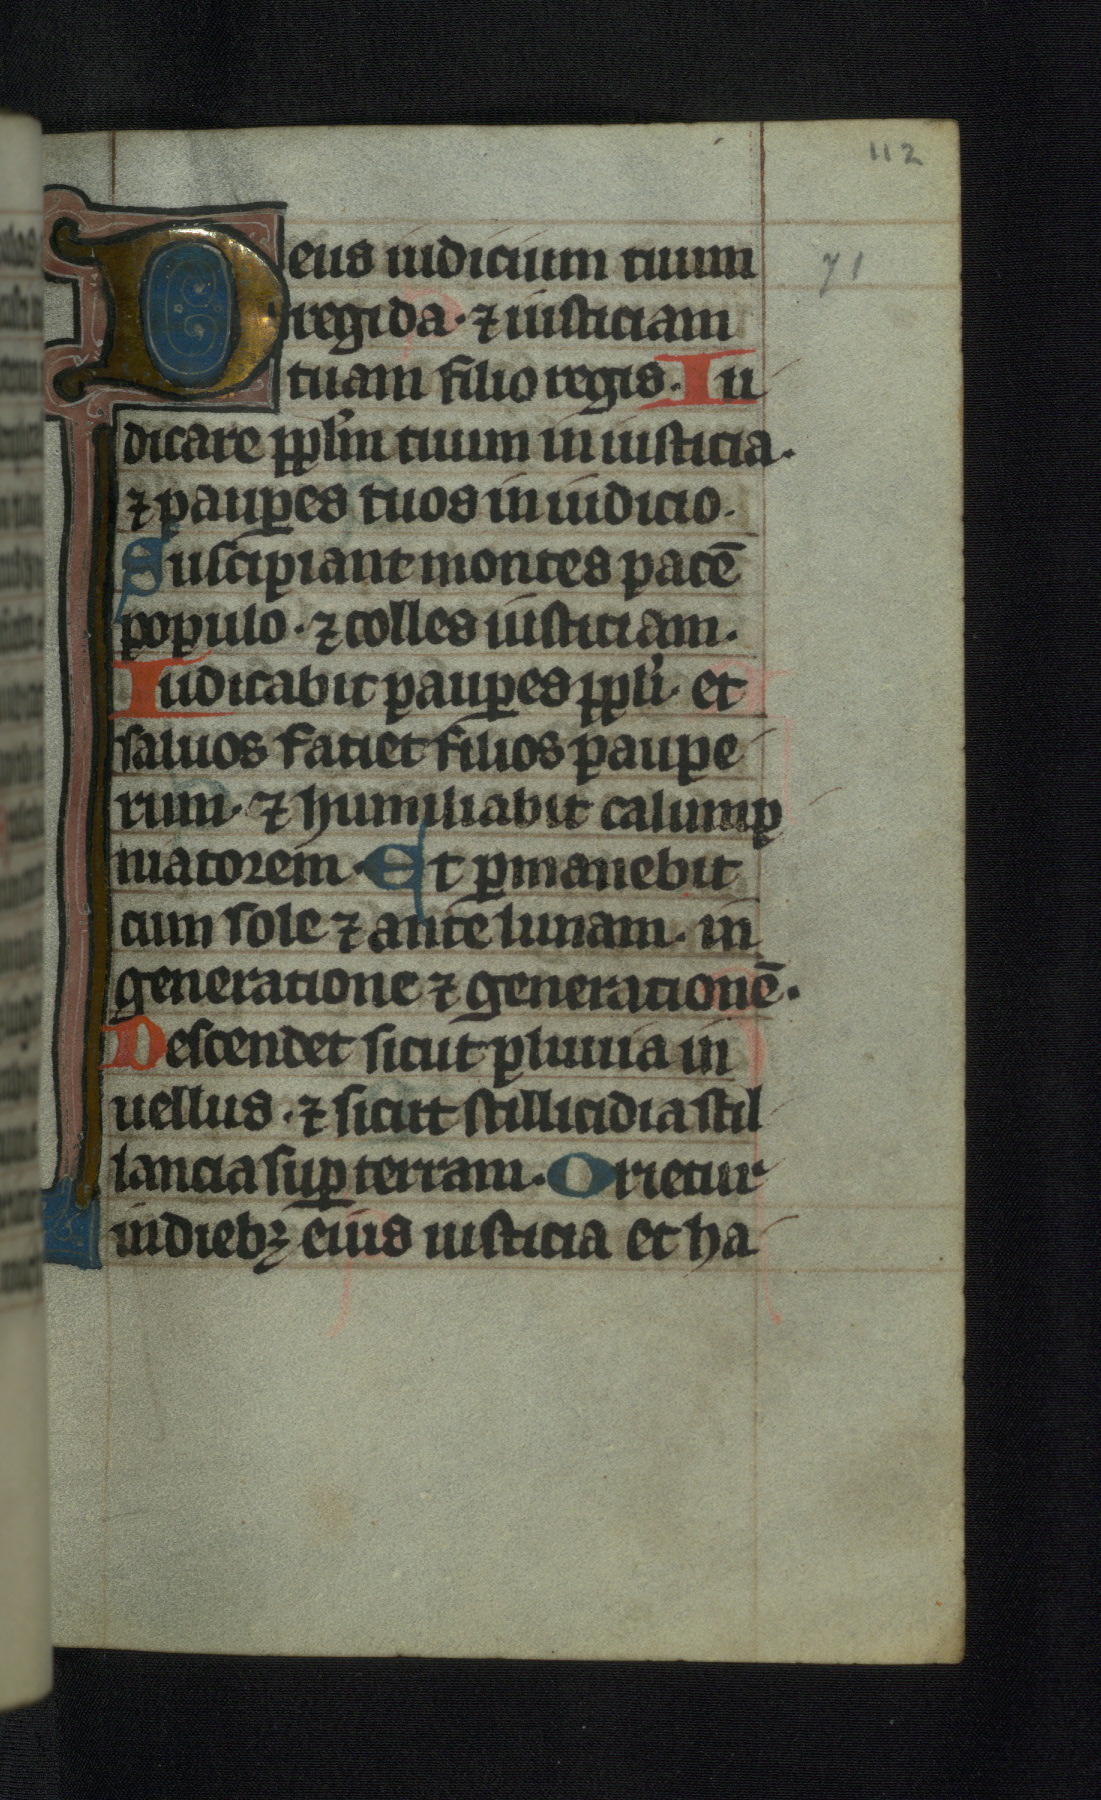 112
Deus iudicium tuum
71
regi da · ⁊ iusticiam
tuam filio regis · Iu
dicare pp̄lm tuum in iusticia ·
⁊ paup̱es tuos in iudicio ·
Suscipiant montes pacē
populo · ⁊ colles iusticiam ·
Iudicabit paup̱es pp̄li · et
saluos faciet filios paup̱e
rum · ⁊ humiliabit calump
niatorem · Et p̱manebit
cum sole ⁊ ante lunam · in
generatione ⁊ generationē ·
Descendet sicut pluuia in
uellus · ⁊ sicut stillicidia stil
lancia sup̱ terram · Orietur
in diebꝫ eius iusticia et ha